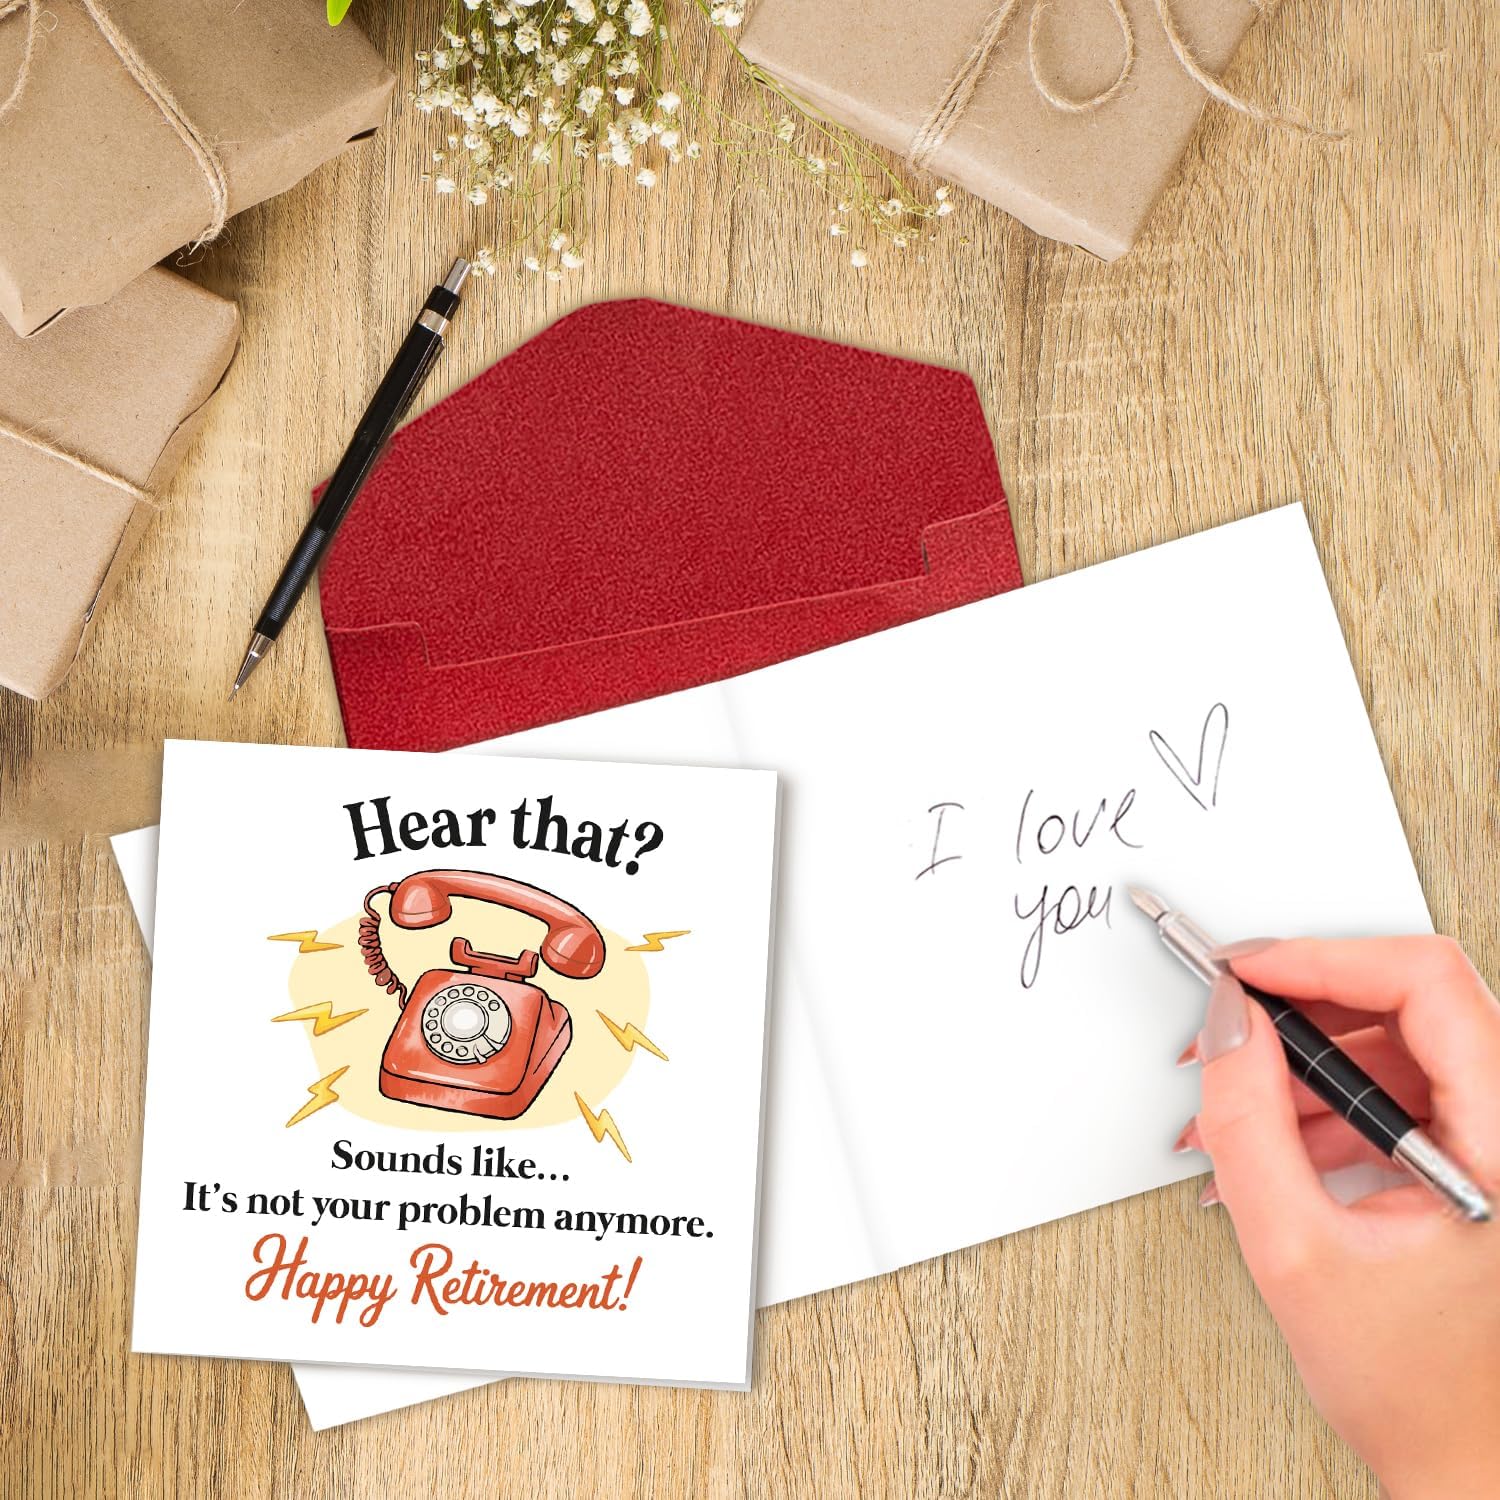 Hear that?
Sounds like...
It's not your problem anymore.
Happy Retirement!
I love
you